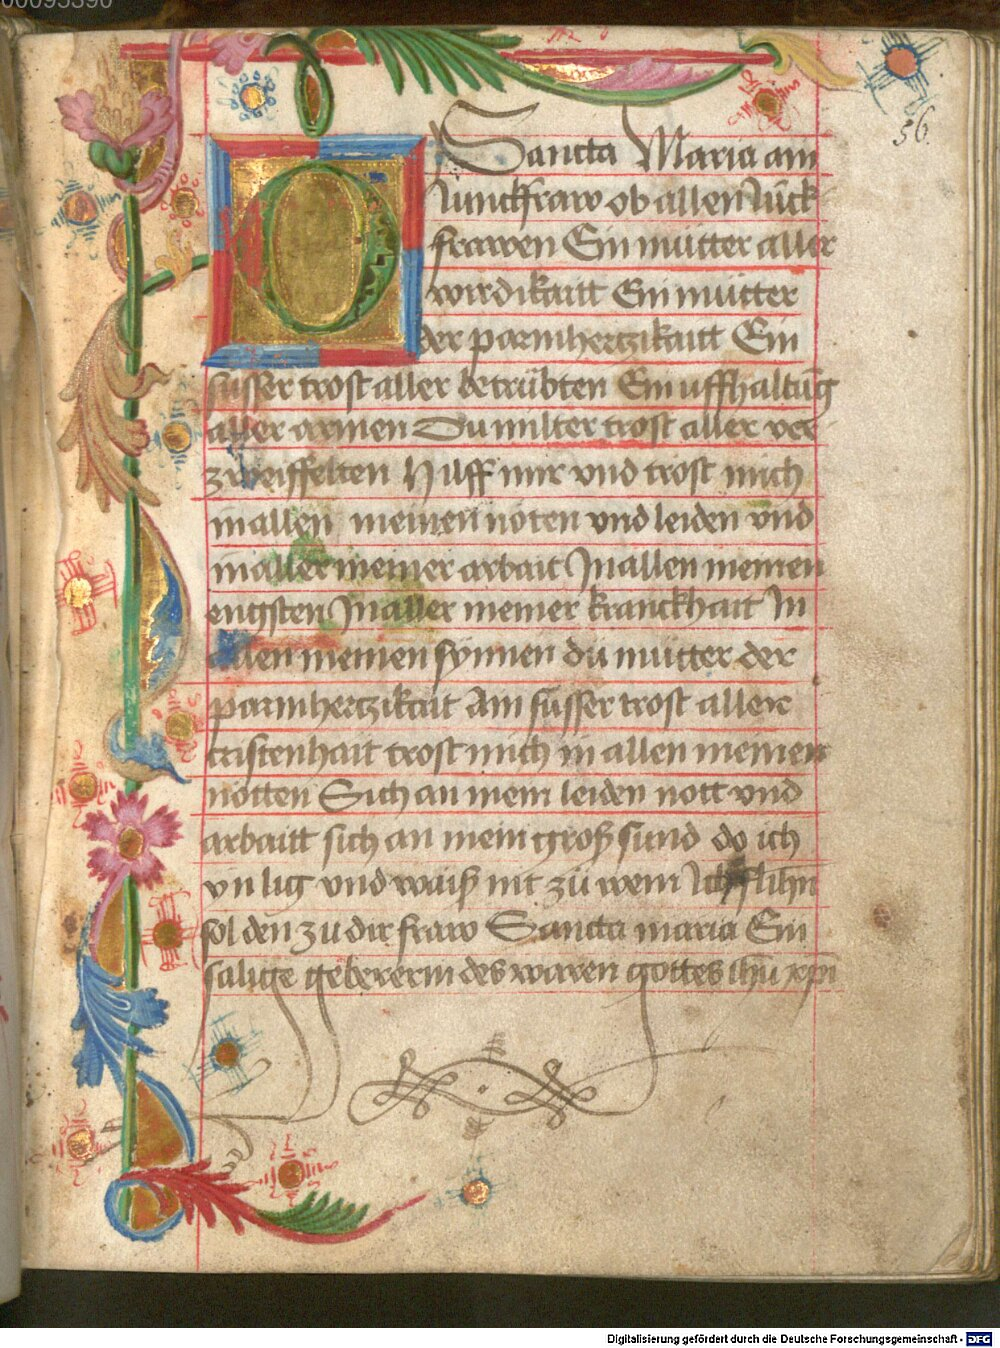 00095390
56.
O Sancta Maria ain
Junckfraw ob allen Jūck
frawen Ein mütter aller
wirdikaitt Ein mütter
der parmhertzikaitt Ein
süsser trost aller betrübten Ein uffhaltūg
aller armen Du milter trost aller ver
zweiffelten Hilff mir vnd trost mich
in allen meinen nöten vnd leiden vnd
in aller meiner arbait In allen meinen
engsten In aller meiner kranckhait In
allen meinen sÿnnen du mütter der
parmhertzikait Ain süsser trost aller
cristenhait trost mich in allen meinen
nötten Sich an mein leiden nott vnd
arbaitt sich an mein groß sünd do ich
vn lig vnd waiß nit zü wem Ich flihn
sol den zu dir fraw Sancta maria Ein
salige gebererin des waren gottes ihū xpi
Digitalisierung gefördert durch die Deutsche Forschungsgemeinschaft - DFG